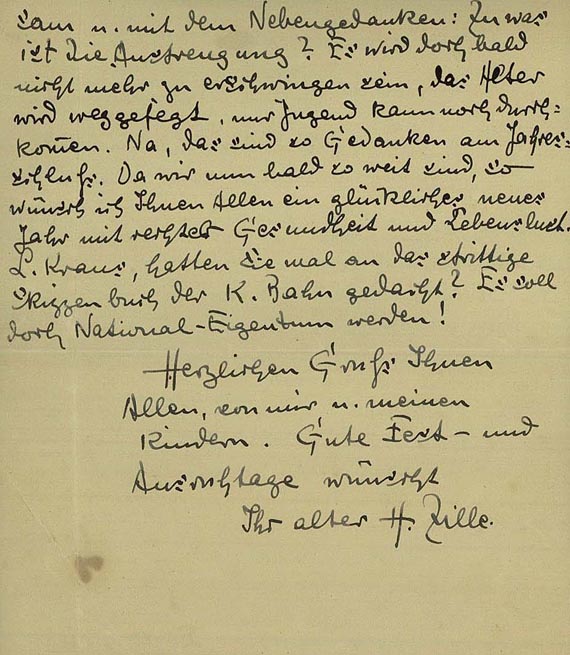 sam u. mit dem Nebengedanken: Zu was
ist die Anstrengung? Es wird doch bald
nicht mehr zu erschwingen sein, das Alter
wird weggefegt, nur Jugend kann noch durch-
kom̄en. Na, das sind so Gedanken am Jahres-
schluß. Da wir nun bald so weit sind, so
wünsch ich Ihnen Allen ein glückliches neues
Jahr mit rechter Gesundheit und Lebenslust.
L. Kraus, hatten Sie mal an das strittige
Skizzenbuch der K. Bahn gedacht? Es soll
doch National-Eigentum werden!
Herzlichen Gruß Ihnen
Allen, von mir u. meinen
Kindern. Gute Fest- und
Ausruhtage wünscht
Ihr alter H. Zille.